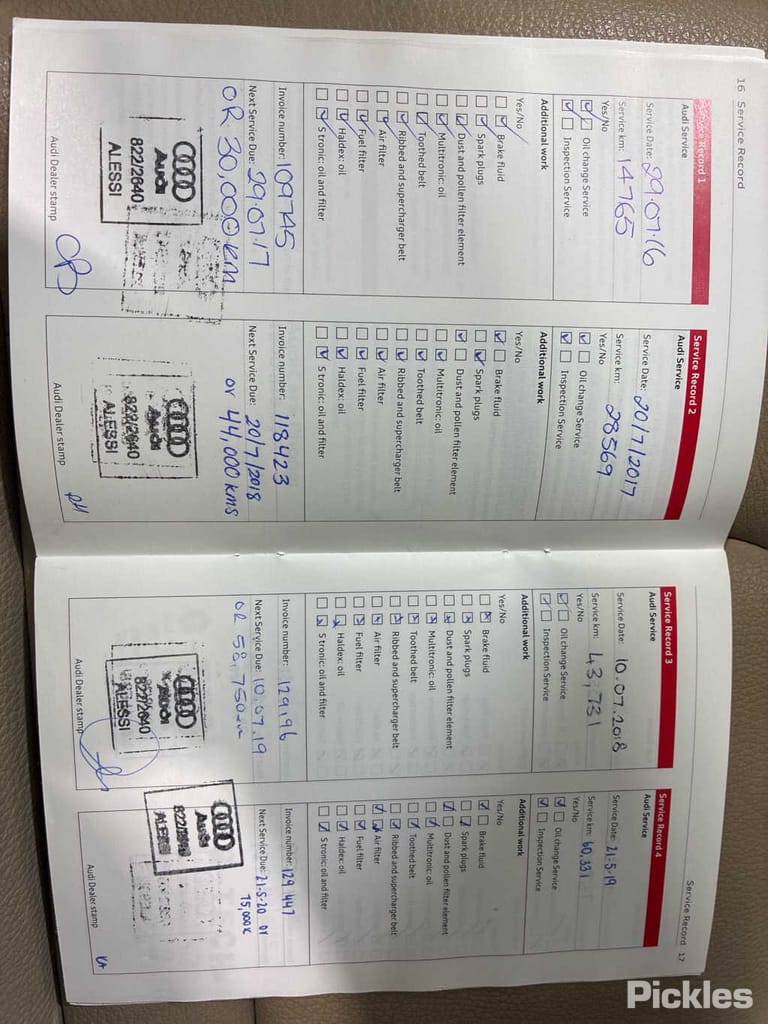 16 Service Record
Service Record 1
Audi Service
Service Date: 29.07.16
Service km: 14765
Yes/No
Oil change Service
Inspection Service
Additional work
Yes/No
Brake fluid
Spark plugs
Dust and pollen filter element
Multitronic: oil
Toothed belt
Ribbed and supercharger belt
Air filter
Fuel filter
Haldex: oil
S tronic: oil and filter
Invoice number: 109745
Next Service Due: 29.07.17
OR 30,000 KM
Audi
822/2640
ALESSI
Audi Dealer stamp
Service Record 2
Audi Service
Service Date: 20/7/2017
Service km: 28569
Yes/No
Oil change Service
Inspection Service
Additional work
Yes/No
Brake fluid
Spark plugs
Dust and pollen filter element
Multitronic: oil
Toothed belt
Ribbed and supercharger belt
Air filter
Fuel filter
Haldex: oil
S tronic: oil and filter
Invoice number: 118423
Next Service Due: 20/7/2018
or 44,000 kms
Audi
822/2640
ALESSI
Audi Dealer stamp
Service Record 3
Audi Service
Service Date: 10.07.2018
Service km: 43,731
Yes/No
Oil change Service
Inspection Service
Additional work
Yes/No
Brake fluid
Spark plugs
Dust and pollen filter element
Multitronic: oil
Toothed belt
Ribbed and supercharger belt
Air filter
Fuel filter
Haldex: oil
S tronic: oil and filter
Invoice number: 129196
Next Service Due: 10.07.19
OR 58,750km
Audi
822/2640
ALESSI
Audi Dealer stamp
Service Record 17
Service Record 4
Audi Service
Service Date: 21-5-19
Service km: 60,331
Yes/No
Oil change Service
Inspection Service
Additional work
Yes/No
Brake fluid
Spark plugs
Dust and pollen filter element
Multitronic: oil
Toothed belt
Ribbed and supercharger belt
Air filter
Fuel filter
Haldex: oil
S tronic: oil and filter
Invoice number: 129 447
Next Service Due: 21-5-20 or
75,000K
Audi
822/2640
ALESSI
Audi Dealer stamp
Pickles